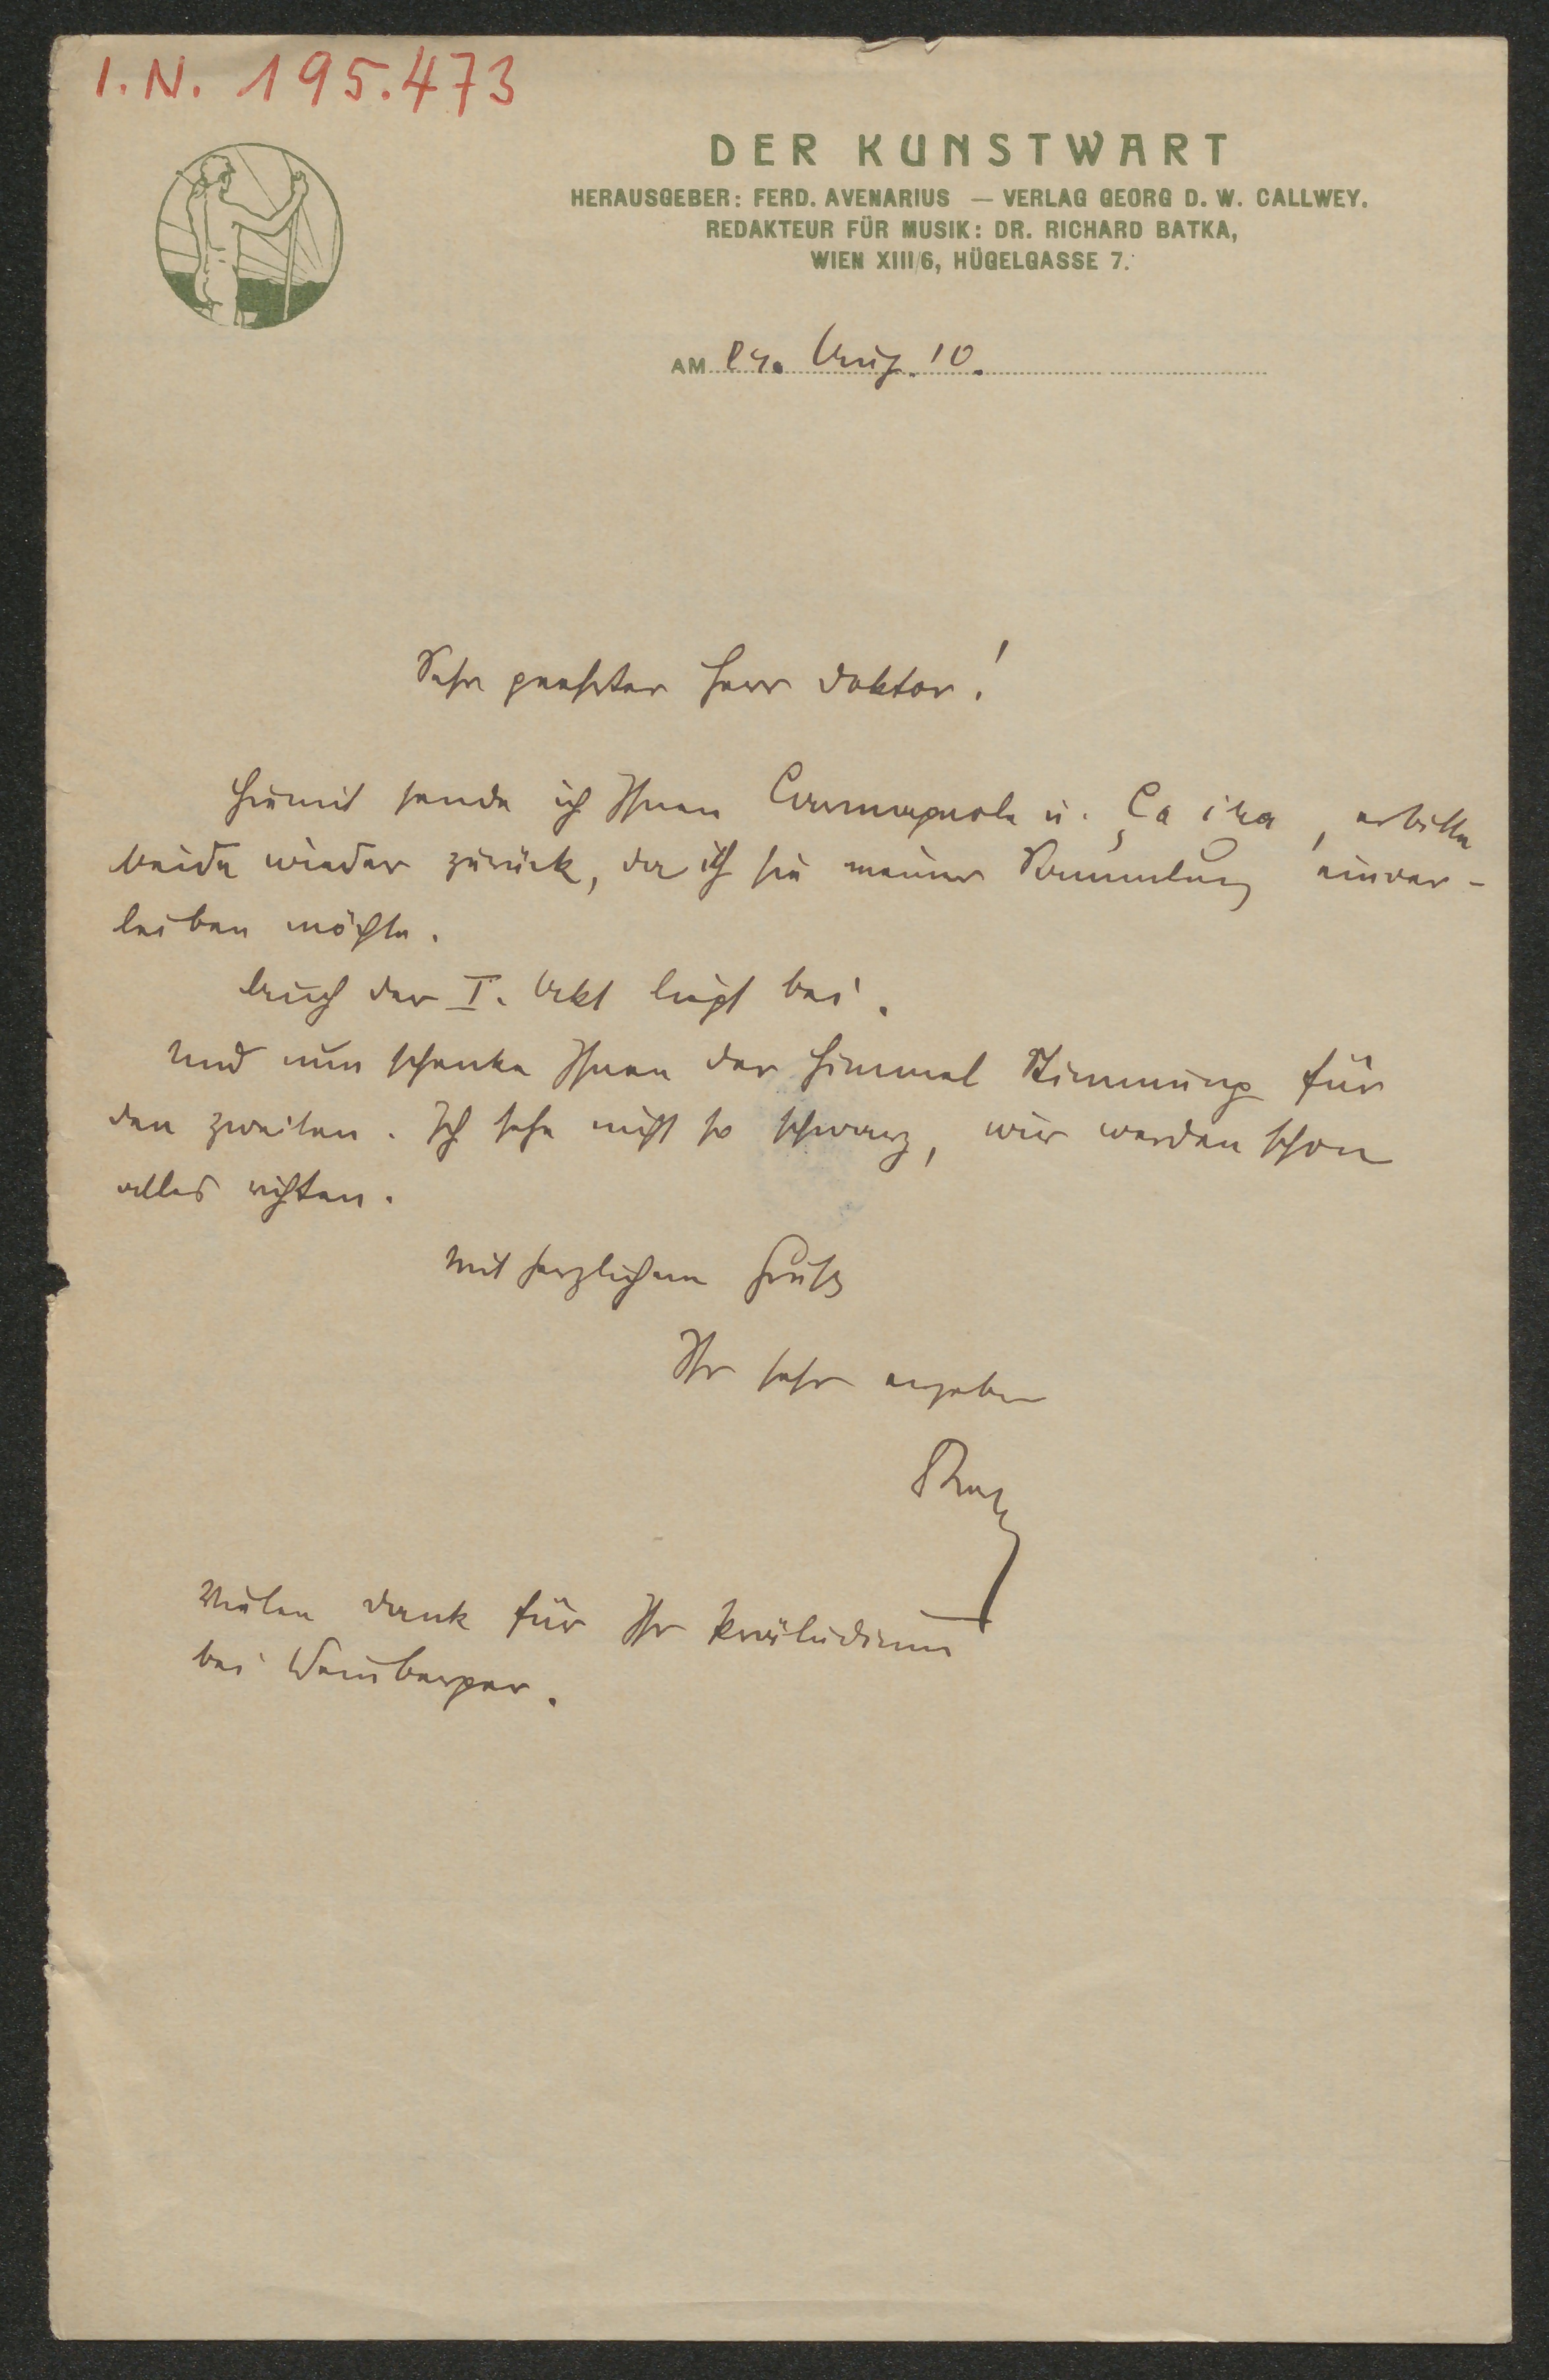 I. N. 195.473
DER KUNSTWART
HERAUSGEBER: FERD. AVENARIUS — VERLAG GEORG D. W. CALLWEY.
REDAKTEUR FÜR MUSIK: DR. RICHARD BATKA,
WIEN XIII/6, HÜGELGASSE 7.
AM Aug. 10.
Sehr geehrter Herr Doktor!
Hiemit sende ich Ihnen Carmagnole u. Ça ira, erbitte
beide wieder zurück, da ich sie meiner Sammlung einver-
leiben möchte.
Auch der I. Akt liegt bei.
Und nun schenke Ihnen der Himmel Stimmung für
den zweiten. Ich sehe nicht so schwarz, wir werden schon
alles richten.
Mit herzlichem Gruß
Ihr sehr ergeben
Vielen Dank für Ihr Präludium
bei Weinberger.